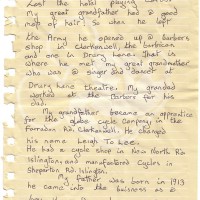 Lost the hotel playing cards.
My great grandfather had a good
roots of hair so when he left
the Army he opened up a barbers
shop in Clerkenwell, the barbican
and one in Drury Lane. that is
where he met my great grandmother
who was a singer and danset at
Drury Lane theatre. My grandad
worked at the barbers for his
dad.
My grandfather became an apprentice
for the globe cycle company in the
Farradon Rd, Clarkenwell. He changed
his name Leigh To Lee.
He had a cycle shop in New North Rd
Islington, and manufactored cycles in
Sheparton Rd. Islington.
My father was born in 1913
he came into the buisness as a